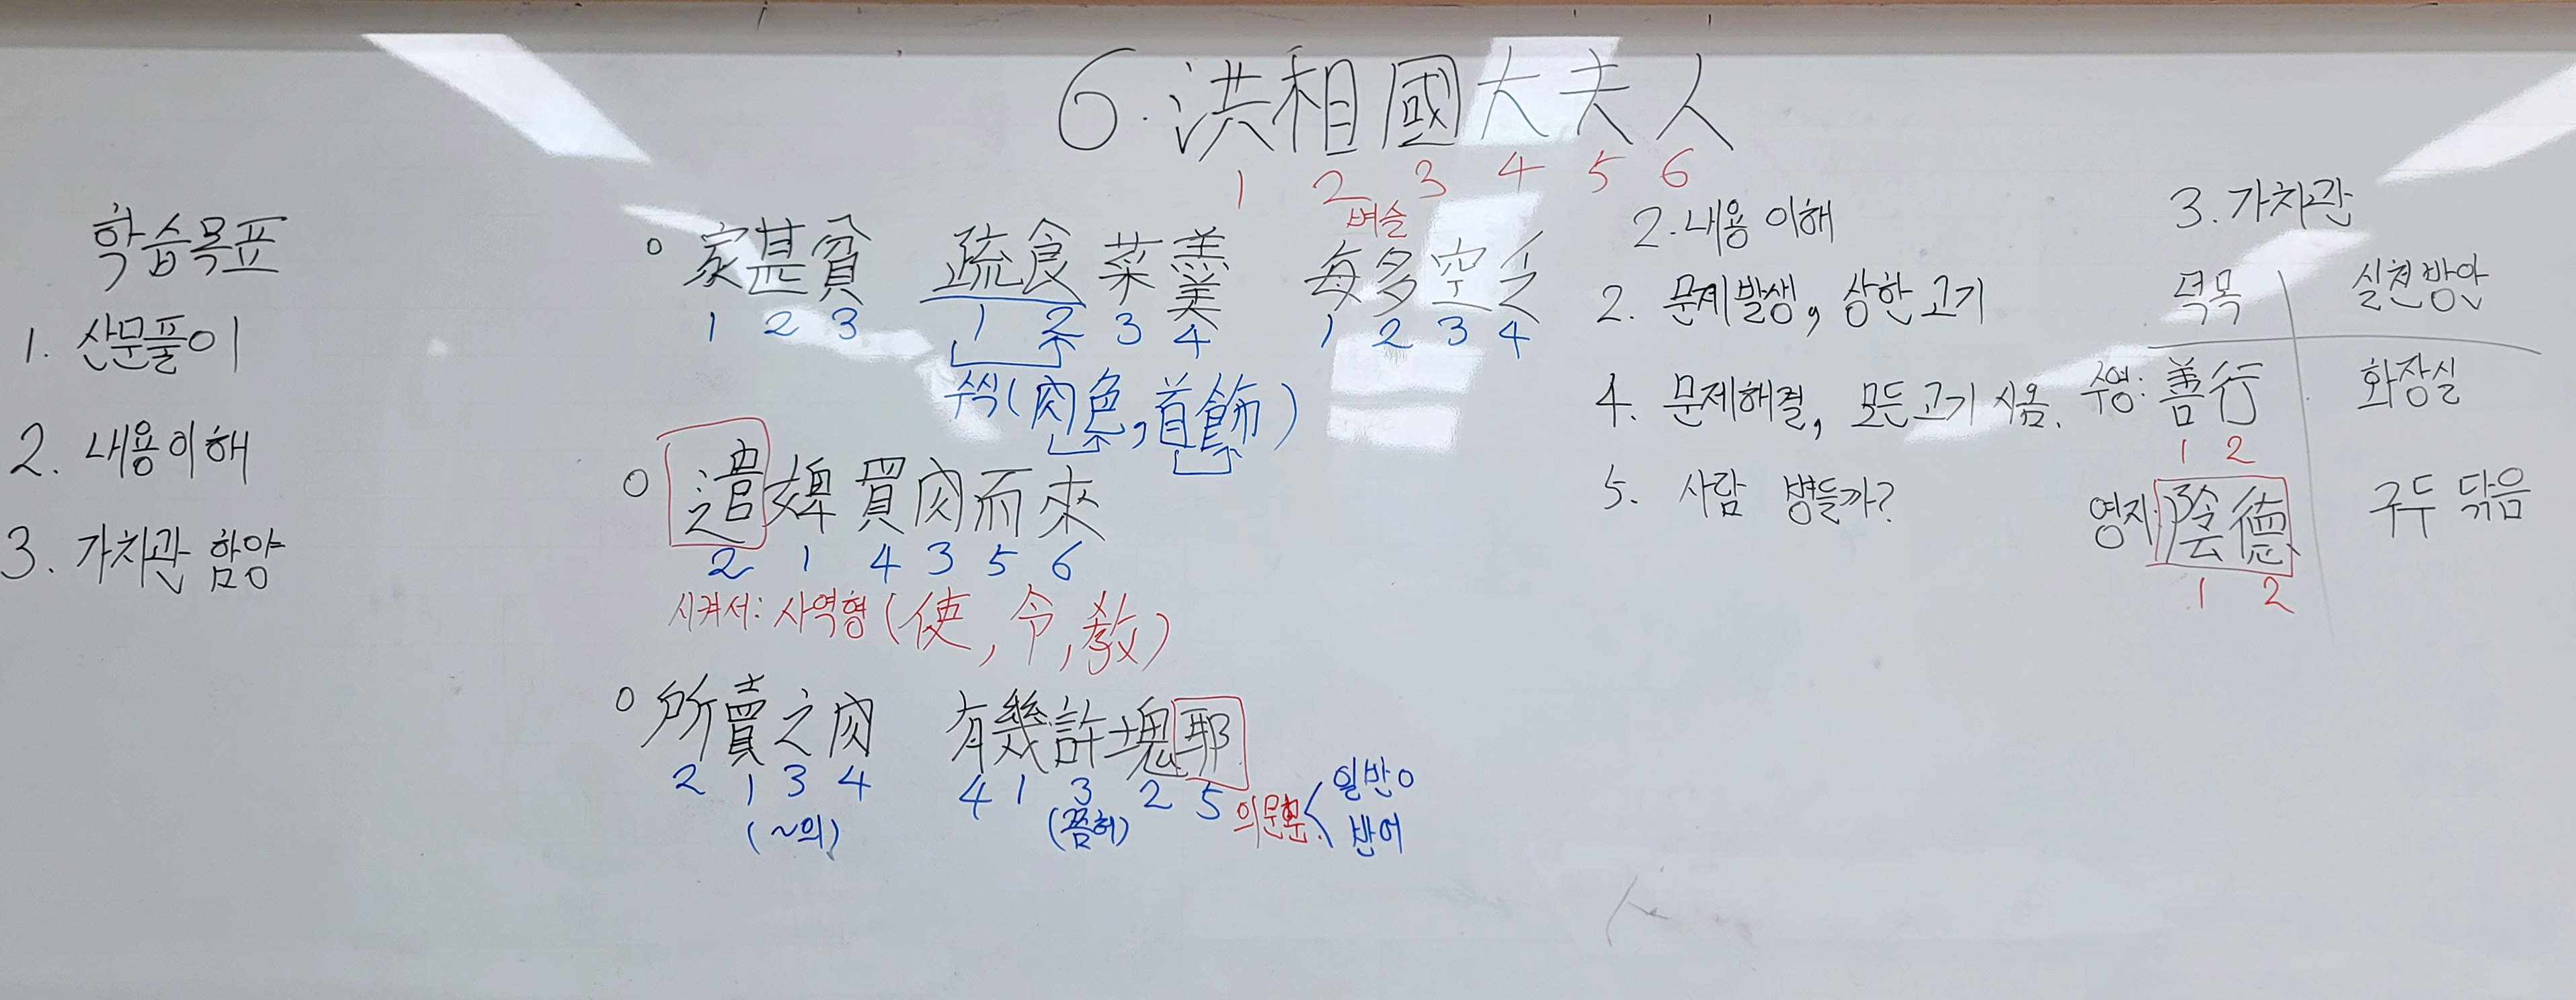 6. 洪相國大夫人
1 2 3 4 5 6
벼슬
학습목표
1. 산문풀이
2. 내용이해
3. 가치관 함양
○ 家甚貧 疏食菜羹 每多空乏
1 2 3 1 2 3 4 1 2 3 4
(肉色, 首飾)
○ 遣婢買肉而來
2 1 4 3 5 6
시켜서: 사역형 (使, 令, 敎)
○ 所賣之肉 有幾許塊耶
2 1 3 4 4 1 3 2 5
(~의) (쯤허) 의문
일반
반어
2. 내용 이해
2. 문제발생, 상한고기
4. 문제해결, 모든고기 사옴.
5. 사람 병들까?
3. 가치관
덕목 실천방안
수영: 善行 화장실
1 2
영지: 陰德 구두 닦음
1 2